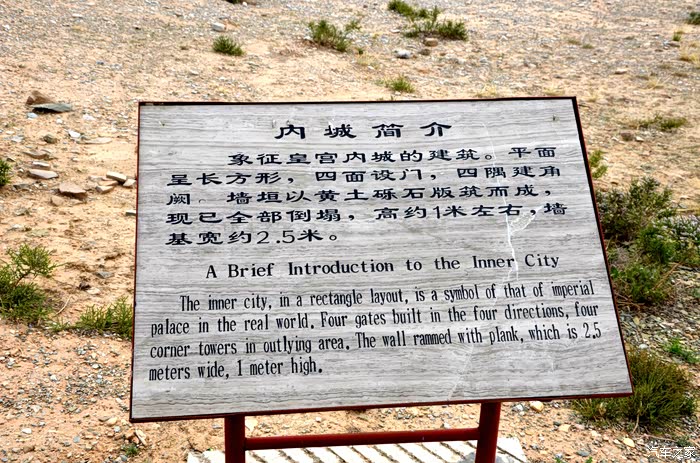 内城简介
象征皇宫内城的建筑。平面
呈长方形，四面设门，四隅建角
阙。墙垣以黄土砾石版筑而成，
现已全部倒塌，高约1米左右，墙
基宽约2.5米。
A Brief Introduction to the Inner City
The inner city, in a rectangle layout, is a symbol of that of imperial
palace in the real world. Four gates built in the four directions, four
corner towers in outlying area. The wall rammed with plank, which is 2.5
meters wide, 1 meter high.
汽车之家